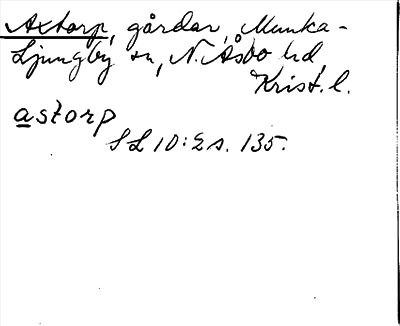 Axtorp, gårdar, Munka-
Ljungby sn, N. Åsbo hd
Krist. l.
astorp
SL 10:2 s. 135.